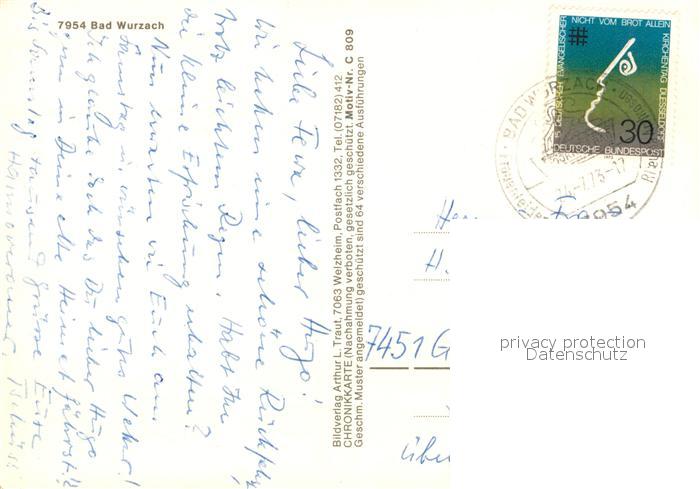 7954 Bad Wurzach
Liebe Fewa, lieber Hugo!
Wir hatten eine schöne Rückfahrt
trotz leichtem Regen. Habt Ihr
die kleine Erfrischung erhalten?
Nun warten wir Euch am
Samstag u. wünschen gutes Wetter!
Ich glaube doch das Du lieber Hugo
gern in Deine alte Heimat fährst!!
Bis Samstag tausend Grüsse Eure
Bildverlag Arthur L. Traut, 7063 Welzheim, Postfach 1332, Tel. (07182) 412
CHRONIKKARTE (Nachahmung verboten, gesetzlich geschützt. Motiv-Nr. C 809
Geschm. Muster angemeldet) geschützt sind 64 verschiedene Ausführungen
NICHT VOM BROT ALLEIN
15. DEUTSCHER EVANGELISCHER
KIRCHENTAG DUESSELDORF
30
1973
DEUTSCHE BUNDESPOST
BAD WURZACH
7954
H.
7451 G
über
privacy protection
Datenschutz